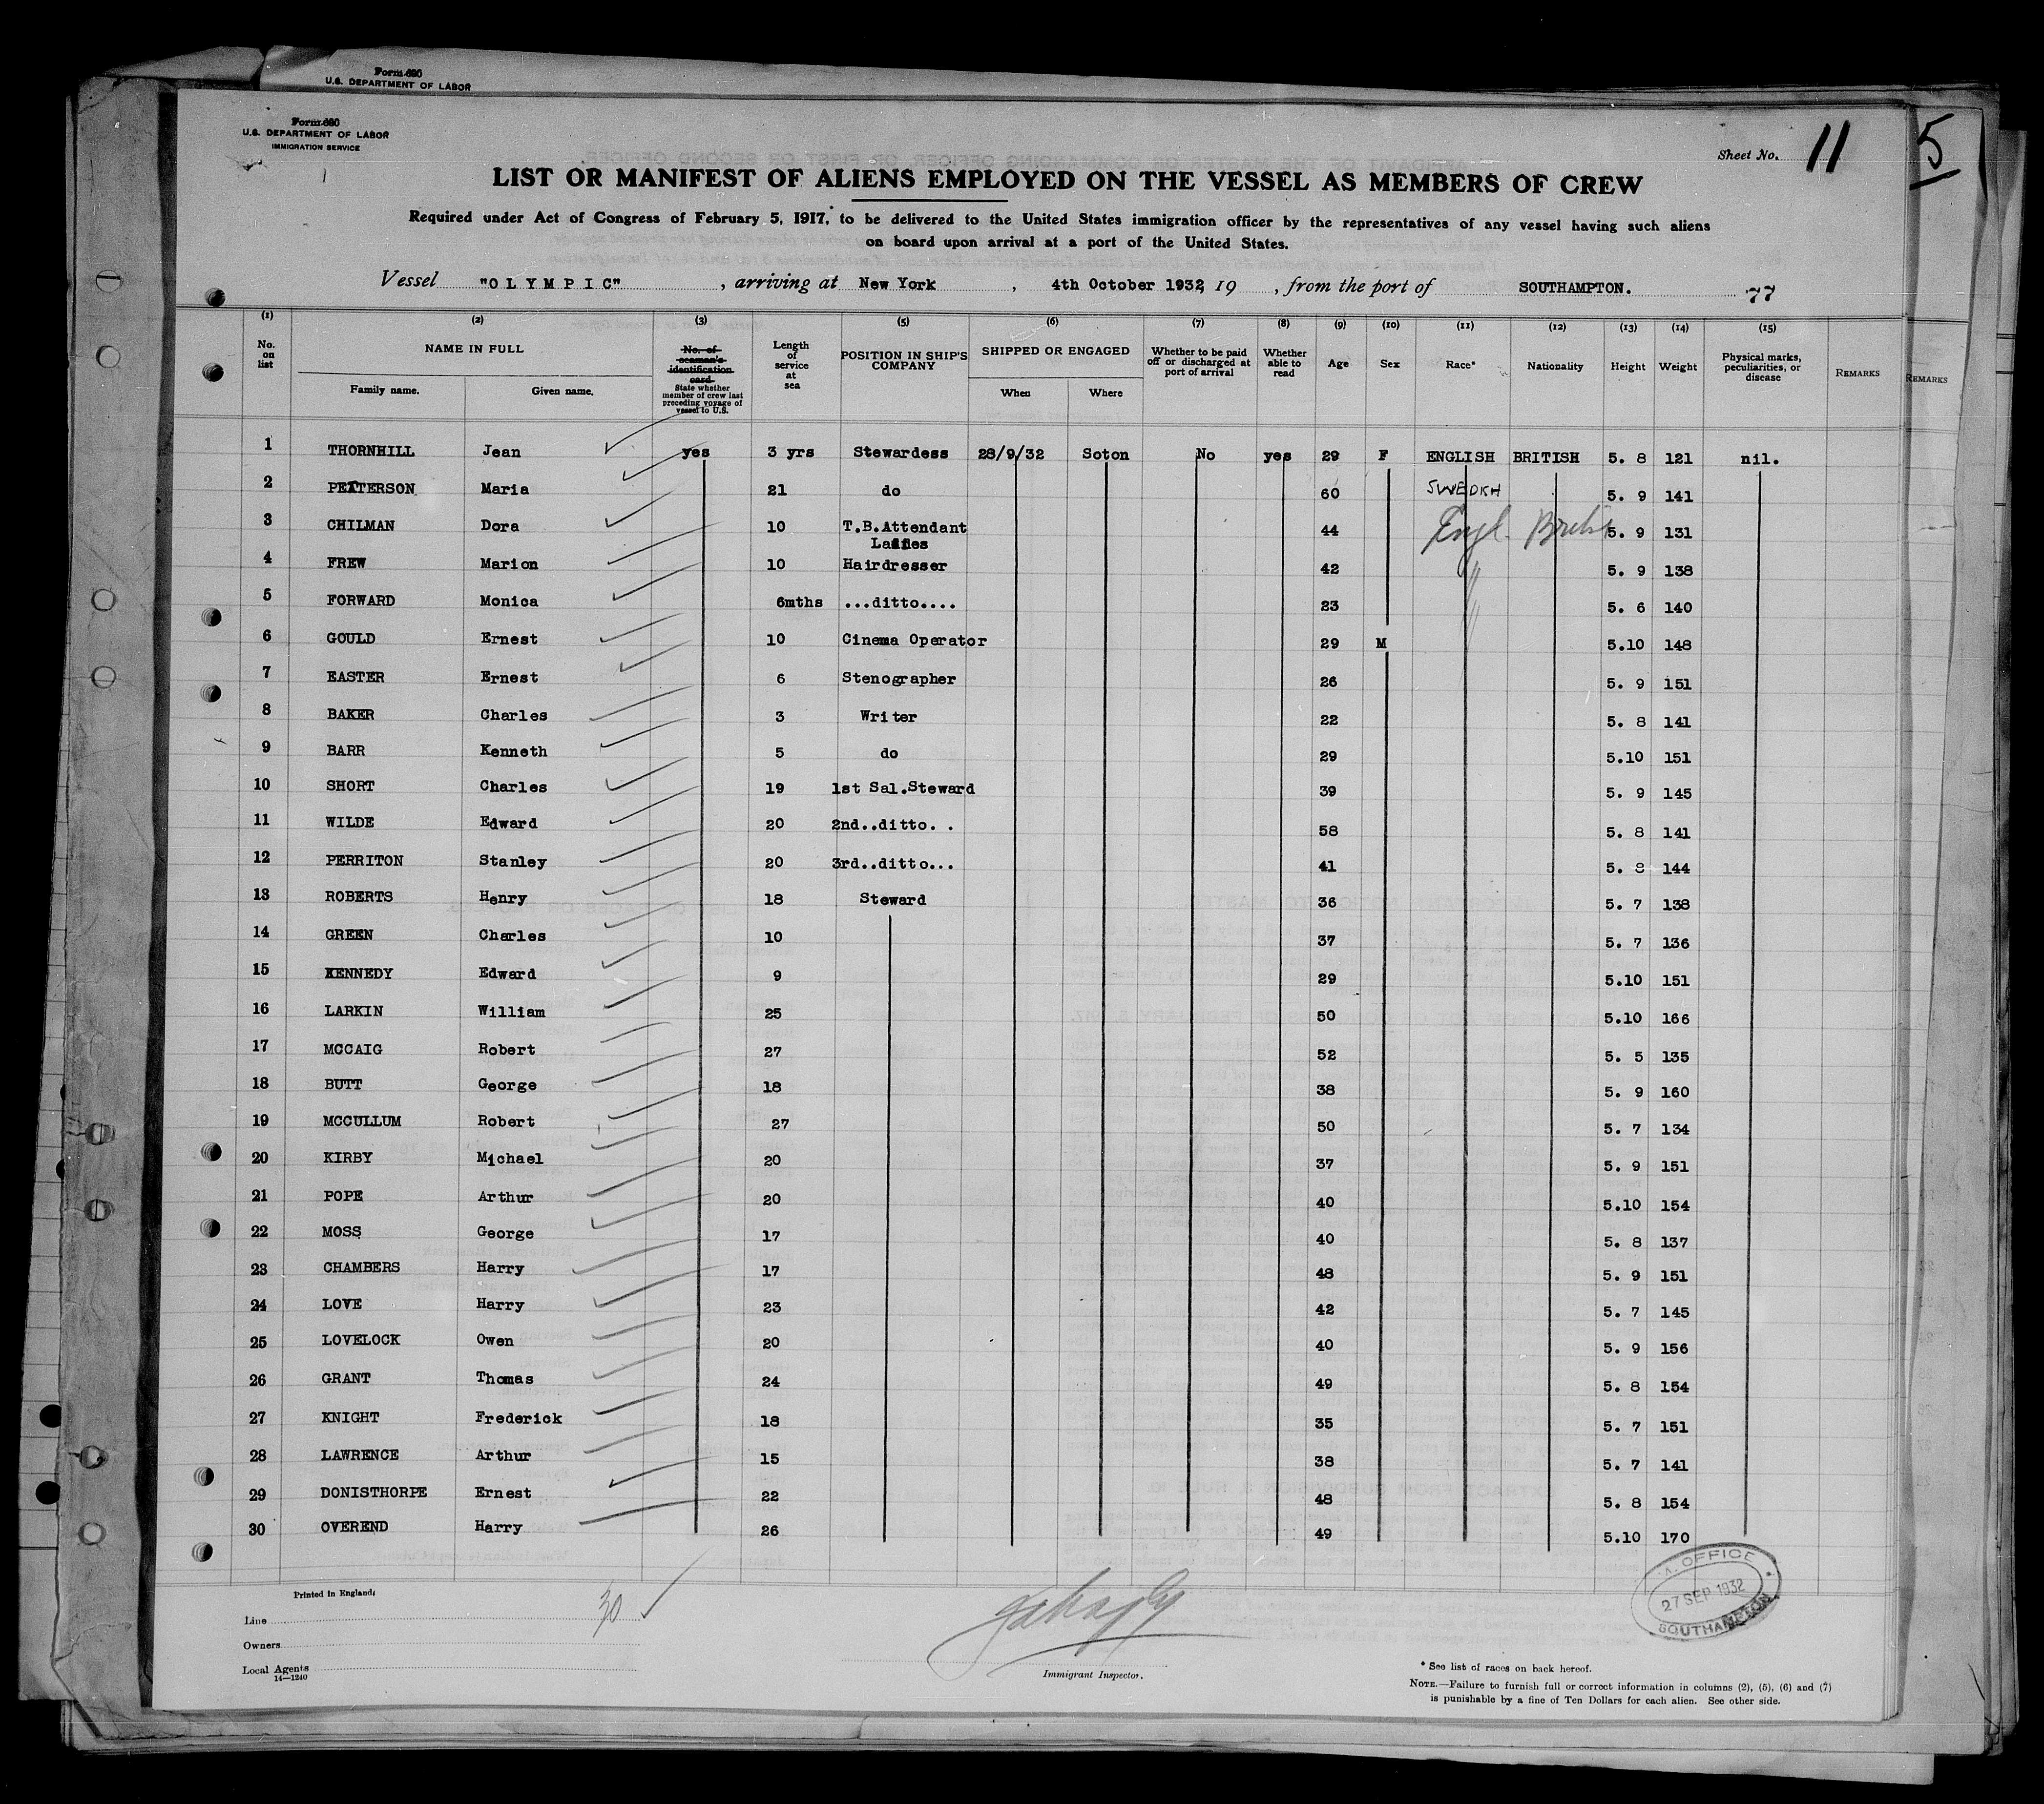 Form 680
U.S. DEPARTMENT OF LABOR
Form 680
U.S. DEPARTMENT OF LABOR
IMMIGRATION SERVICE
Sheet No. 11
5
LIST OR MANIFEST OF ALIENS EMPLOYED ON THE VESSEL AS MEMBERS OF CREW
Required under Act of Congress of February 5, 1917, to be delivered to the United States immigration officer by the representatives of any vessel having such aliens
on board upon arrival at a port of the United States.
Vessel "OLYMPIC", arriving at New York, 4th October 1932, 19 , from the port of SOUTHAMPTON. 77
(1) (2) (3) (5) (6) (7) (8) (9) (10) (11) (12) (13) (14) (15)
No. on list
NAME IN FULL
Family name. Given name.
No. of seaman's identification card
State whether member of crew last preceding voyage of vessel to U.S.
Length of service at sea
POSITION IN SHIP'S COMPANY
SHIPPED OR ENGAGED
When Where
Whether to be paid off or discharged at port of arrival
Whether able to read
Age Sex Race* Nationality Height Weight
Physical marks, peculiarities, or disease
REMARKS
REMARKS
1 THORNHILL Jean yes 3 yrs Stewardess 28/9/32 Soton No yes 29 F ENGLISH BRITISH 5. 8 121 nil.
2 PETTERSON Maria 21 do 60 SWEDISH 5. 9 141
3 CHILMAN Dora 10 T.B.Attendant 44 Engl. British 5. 9 131
4 FREW Marion 10 Ladies Hairdresser 42 " 5. 9 138
5 FORWARD Monica 6mths ...ditto.... 23 " 5. 6 140
6 GOULD Ernest 10 Cinema Operator 29 M 5.10 148
7 EASTER Ernest 6 Stenographer 26 5. 9 151
8 BAKER Charles 3 Writer 22 5. 8 141
9 BARR Kenneth 5 do 29 5.10 151
10 SHORT Charles 19 1st Sal.Steward 39 5. 9 145
11 WILDE Edward 20 2nd..ditto. . 58 5. 8 141
12 PERRITON Stanley 20 3rd..ditto... 41 5. 8 144
13 ROBERTS Henry 18 Steward 36 5. 7 138
14 GREEN Charles 10 37 5. 7 136
15 KENNEDY Edward 9 29 5.10 151
16 LARKIN William 25 50 5.10 166
17 MCCAIG Robert 27 52 5. 5 135
18 BUTT George 18 38 5. 9 160
19 MCCULLUM Robert 27 50 5. 7 134
20 KIRBY Michael 20 37 5. 9 151
21 POPE Arthur 20 40 5.10 154
22 MOSS George 17 40 5. 8 137
23 CHAMBERS Harry 17 48 5. 9 151
24 LOVE Harry 23 42 5. 7 145
25 LOVELOCK Owen 20 40 5. 9 156
26 GRANT Thomas 24 49 5. 8 154
27 KNIGHT Frederick 18 35 5. 7 151
28 LAWRENCE Arthur 15 38 5. 7 141
29 DONISTHORPE Ernest 22 48 5. 8 154
30 OVEREND Harry 26 49 5.10 170
Printed in England.
30
Line
Owners
Local Agents
14—1240
Immigrant Inspector.
OFFICE
27 SEP 1932
SOUTHAMPTON
* See list of races on back hereof.
NOTE.—Failure to furnish full or correct information in columns (2), (5), (6) and (7)
is punishable by a fine of Ten Dollars for each alien. See other side.